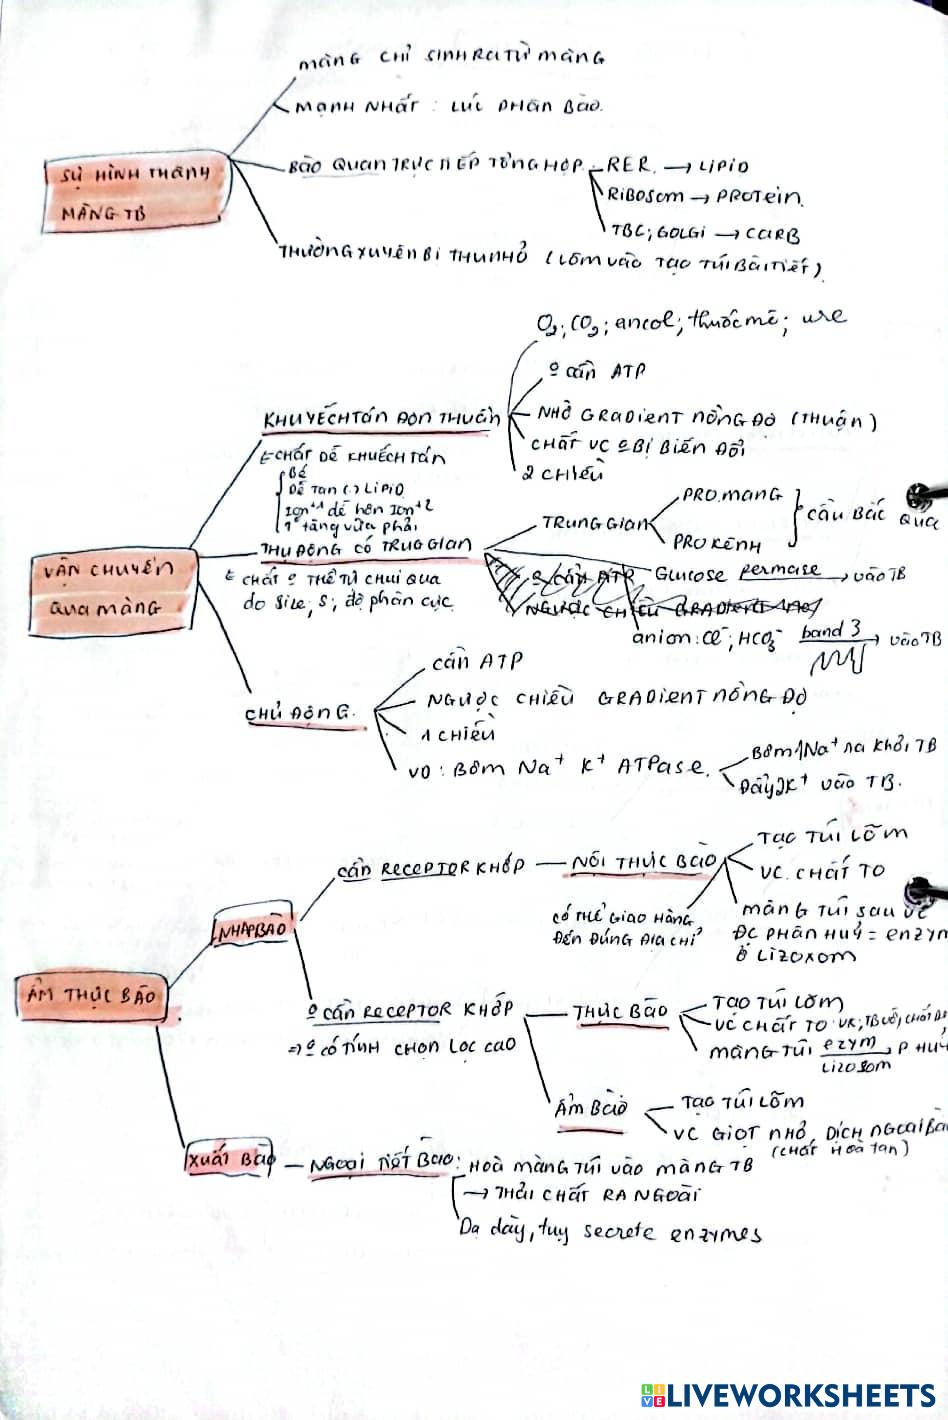 MÀNG CHỈ SINH RA TỪ MÀNG
MẠNH NHẤT : LÚC PHÂN BÀO.
SỰ HÌNH THÀNH
MÀNG TB
BÀO QUAN TRỰC TIẾP TỔNG HỢP
RER. → LIPID
RIBOSOM → PROTEIN.
TBC; GOLGI → CARB
THƯỜNG XUYÊN BỊ THU NHỎ (LÕM VÀO TẠO TÚI BÀI TIẾT)
O2; CO2; ancol; thuốc mê; ure
º cần ATP
KHUYẾCH TÁN ĐƠN THUẦN
NHỜ GRADIENT NỒNG ĐỘ (THUẬN)
CHẤT VC º BỊ BIẾN ĐỔI
2 CHIỀU
CHẤT DỄ KHUẾCH TÁN
BÉ
DỄ TAN (.) LIPID
Ion+1 dễ hơn Ion+2
tº tăng vừa phải
VẬN CHUYỂN
QUA MÀNG
THỤ ĐỘNG CÓ TRUG GIAN
CHẤT º THỂ TỰ CHUI QUA
do size; S; độ phân cực.
TRUNG GIAN
PRO.MANG
PRO KÊNH
CẦU BẮC QUA
º CẦN ATP
Glucose permase → vào TB
NGƯỢC CHIỀU GRADIENT
anion: Cl-; HCO3- band 3 → vào TB
CHỦ ĐỘNG.
cần ATP
NGƯỢC CHIỀU GRADIENT NỒNG ĐỘ
1 CHIỀU
VD : BƠM Na+ K+ ATPase.
Bơm 1Na+ ra khỏi TB
Đẩy 2K+ vào TB.
ẨM THỰC BÀO
NHẬP BÀO
CẦN RECEPTOR KHỚP — NỘI THỰC BÀO
TẠO TÚI LÕM
VC. CHẤT TO
MÀNG TÚI SAU VC
ĐC PHÂN HUỶ = ENZYM
Ở LIZOXOM
CÓ THỂ GIAO HÀNG
ĐẾN ĐÚNG ĐỊA CHỈ
º CẦN RECEPTOR KHỚP
⇒ º CÓ TÍNH CHỌN LỌC CAO
THỰC BÀO
TẠO TÚI LÕM
VC CHẤT TO: VK; TB VỠ; CHẤT
MÀNG TÚI EZYM LIZOSOM → P. HUỶ
ẨM BÀO
TẠO TÚI LÕM
VC GIỌT NHỎ, DỊCH NGOẠI BÀ
(CHẤT HOÀ TAN)
XUẤT BÀO — NGOẠI TIẾT BÀO: HOÀ MÀNG TÚI VÀO MÀNG TB
→ THẢI CHẤT RA NGOÀI
Dạ dày, tuỵ secrete enzymes
LIVE
LIVEWORKSHEETS